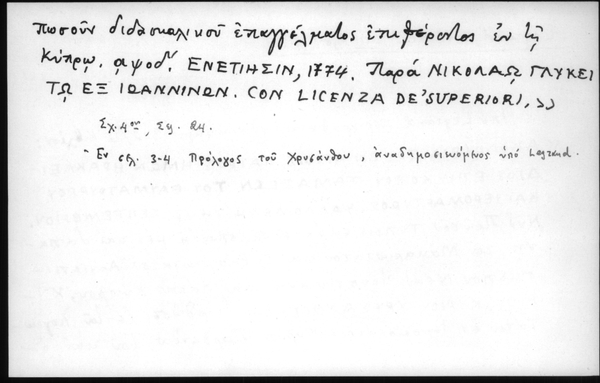 ποσοῦν διδασκαλικοῦ ἐπαγγέλματος ἐπιφέροντος ἐν τῇ
Κύπρῳ. ᾳψοδʹ. ΕΝΕΤΙΗΣΙΝ, 1774. Παρά ΝΙΚΟΛΑΩ ΓΛΥΚΕΙ
ΤΩ ΕΞ ΙΩΑΝΝΙΝΩΝ. CON LICENZA DE' SUPERIORI, >>
Σχ. 4ον, Σελ. 84.
- Ἐν σελ. 3-4 Πρόλογος τοῦ Χρυσάνθου, ἀναδημοσιευόμενος ὑπό Legrand.